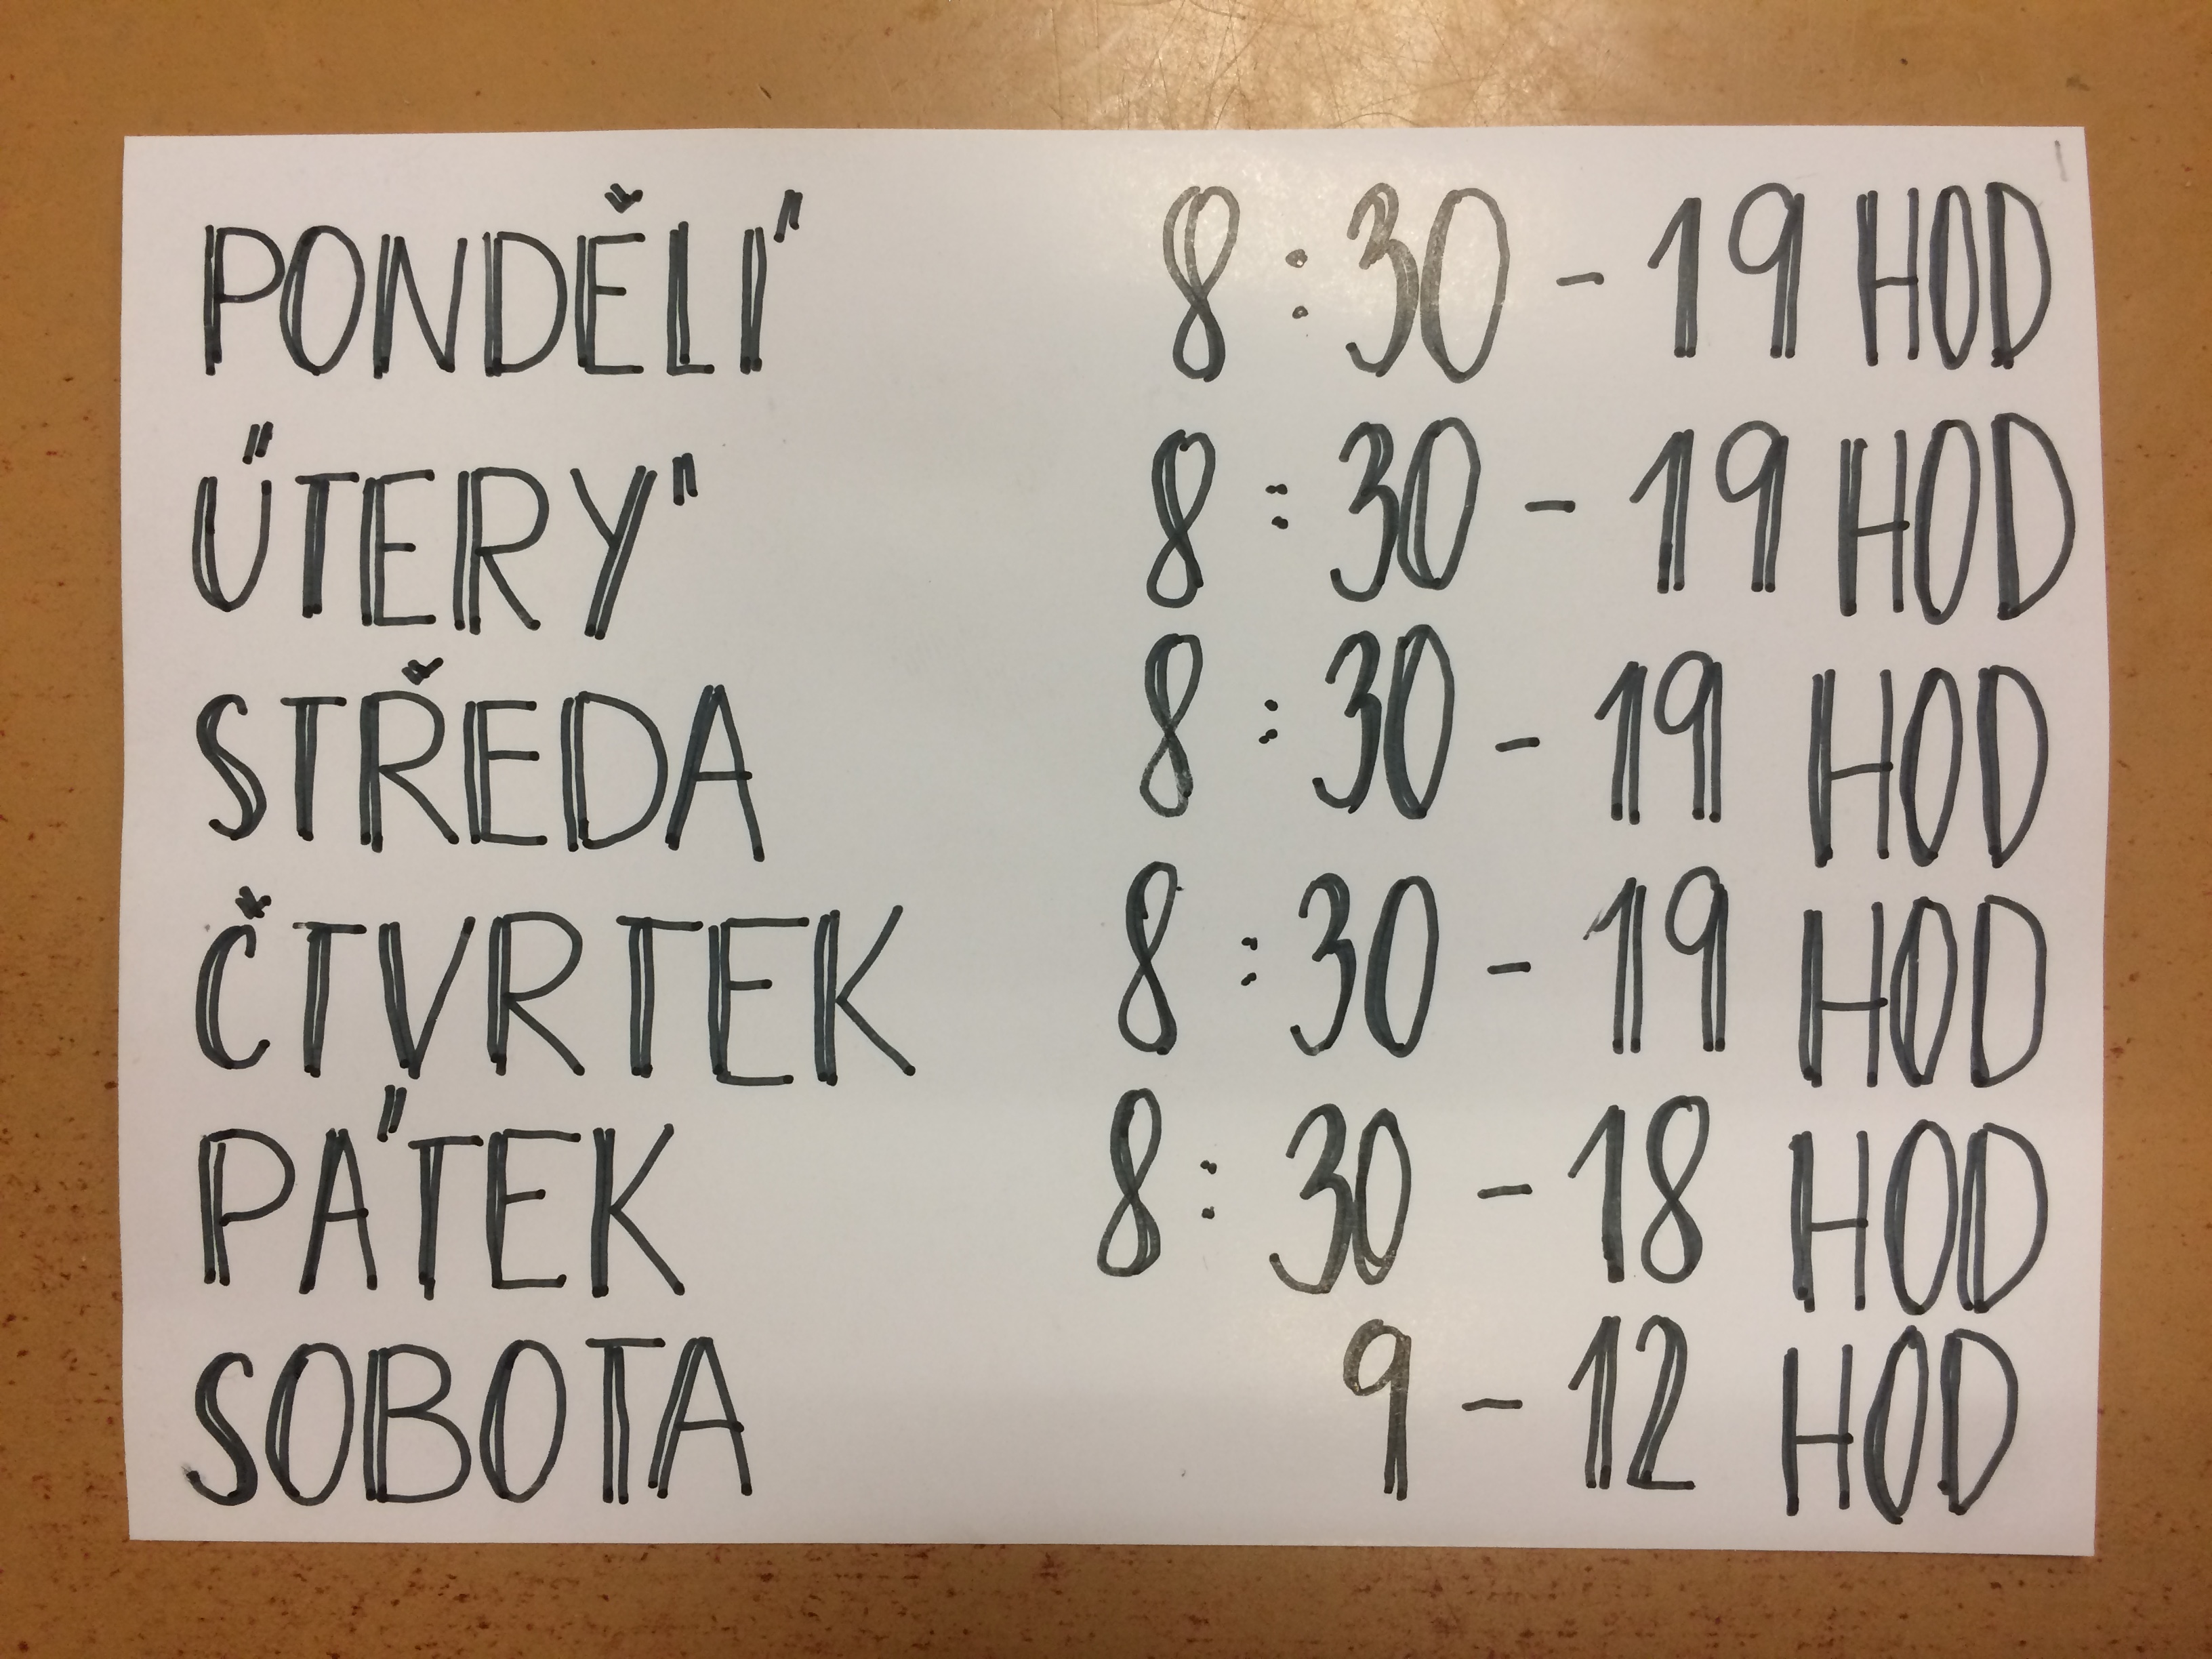 PONDĚLÍ 8:30 - 19 HOD
ÚTERÝ 8:30 - 19 HOD
STŘEDA 8:30 - 19 HOD
ČTVRTEK 8:30 - 19 HOD
PÁTEK 8:30 - 18 HOD
SOBOTA 9 - 12 HOD